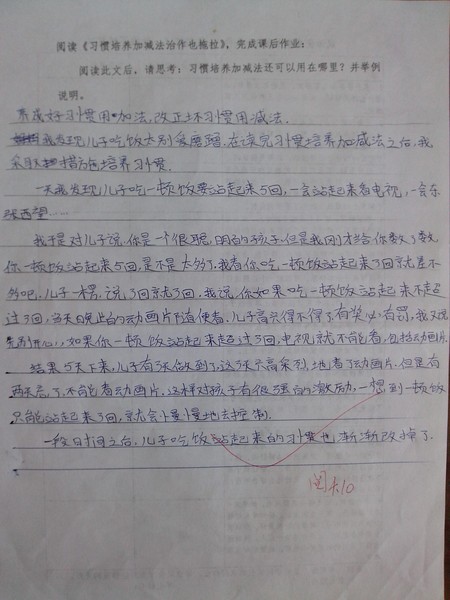 阅读《习惯培养加减法治作业拖拉》，完成课后作业：
阅读此文后，请思考：习惯培养加减法还可以用在哪里？并举例
说明。
养成好习惯用加法，改正坏习惯用减法.
我发现儿子吃饭太别爱磨蹭.在读完习惯培养加减法之后，我
采取措施培养习惯.
一天我发现儿子吃一顿饭要站起来5回，一会站起来看电视，一会东
张西望……
我于是对儿子说，你是一个很聪明的孩子，但是我刚才给你数了数
你一顿饭站起来5回，是不是太多了，我看你吃一顿饭站起来3回就差不
多吧.儿子一楞，说，3回就3回，我说，你如果吃一顿饭站起来不超
过3回，当天晚上的动画片随便看.儿子高兴得不得了.有奖必有罚，我又说
先别开心，如果你一顿饭站起来超过3回，电视就不能看，包括动画片.
结果5天下来，儿子有3天做到了，这3天高采烈地看了动画片.但是有
两天忘了，不能看动画片，这样对孩子有很强的激励，一想到一顿饭
只能站起来3回，就会慢慢地去控制.
一段时间之后，儿子吃饭站起来的习惯也渐渐改掉了.
阅 10